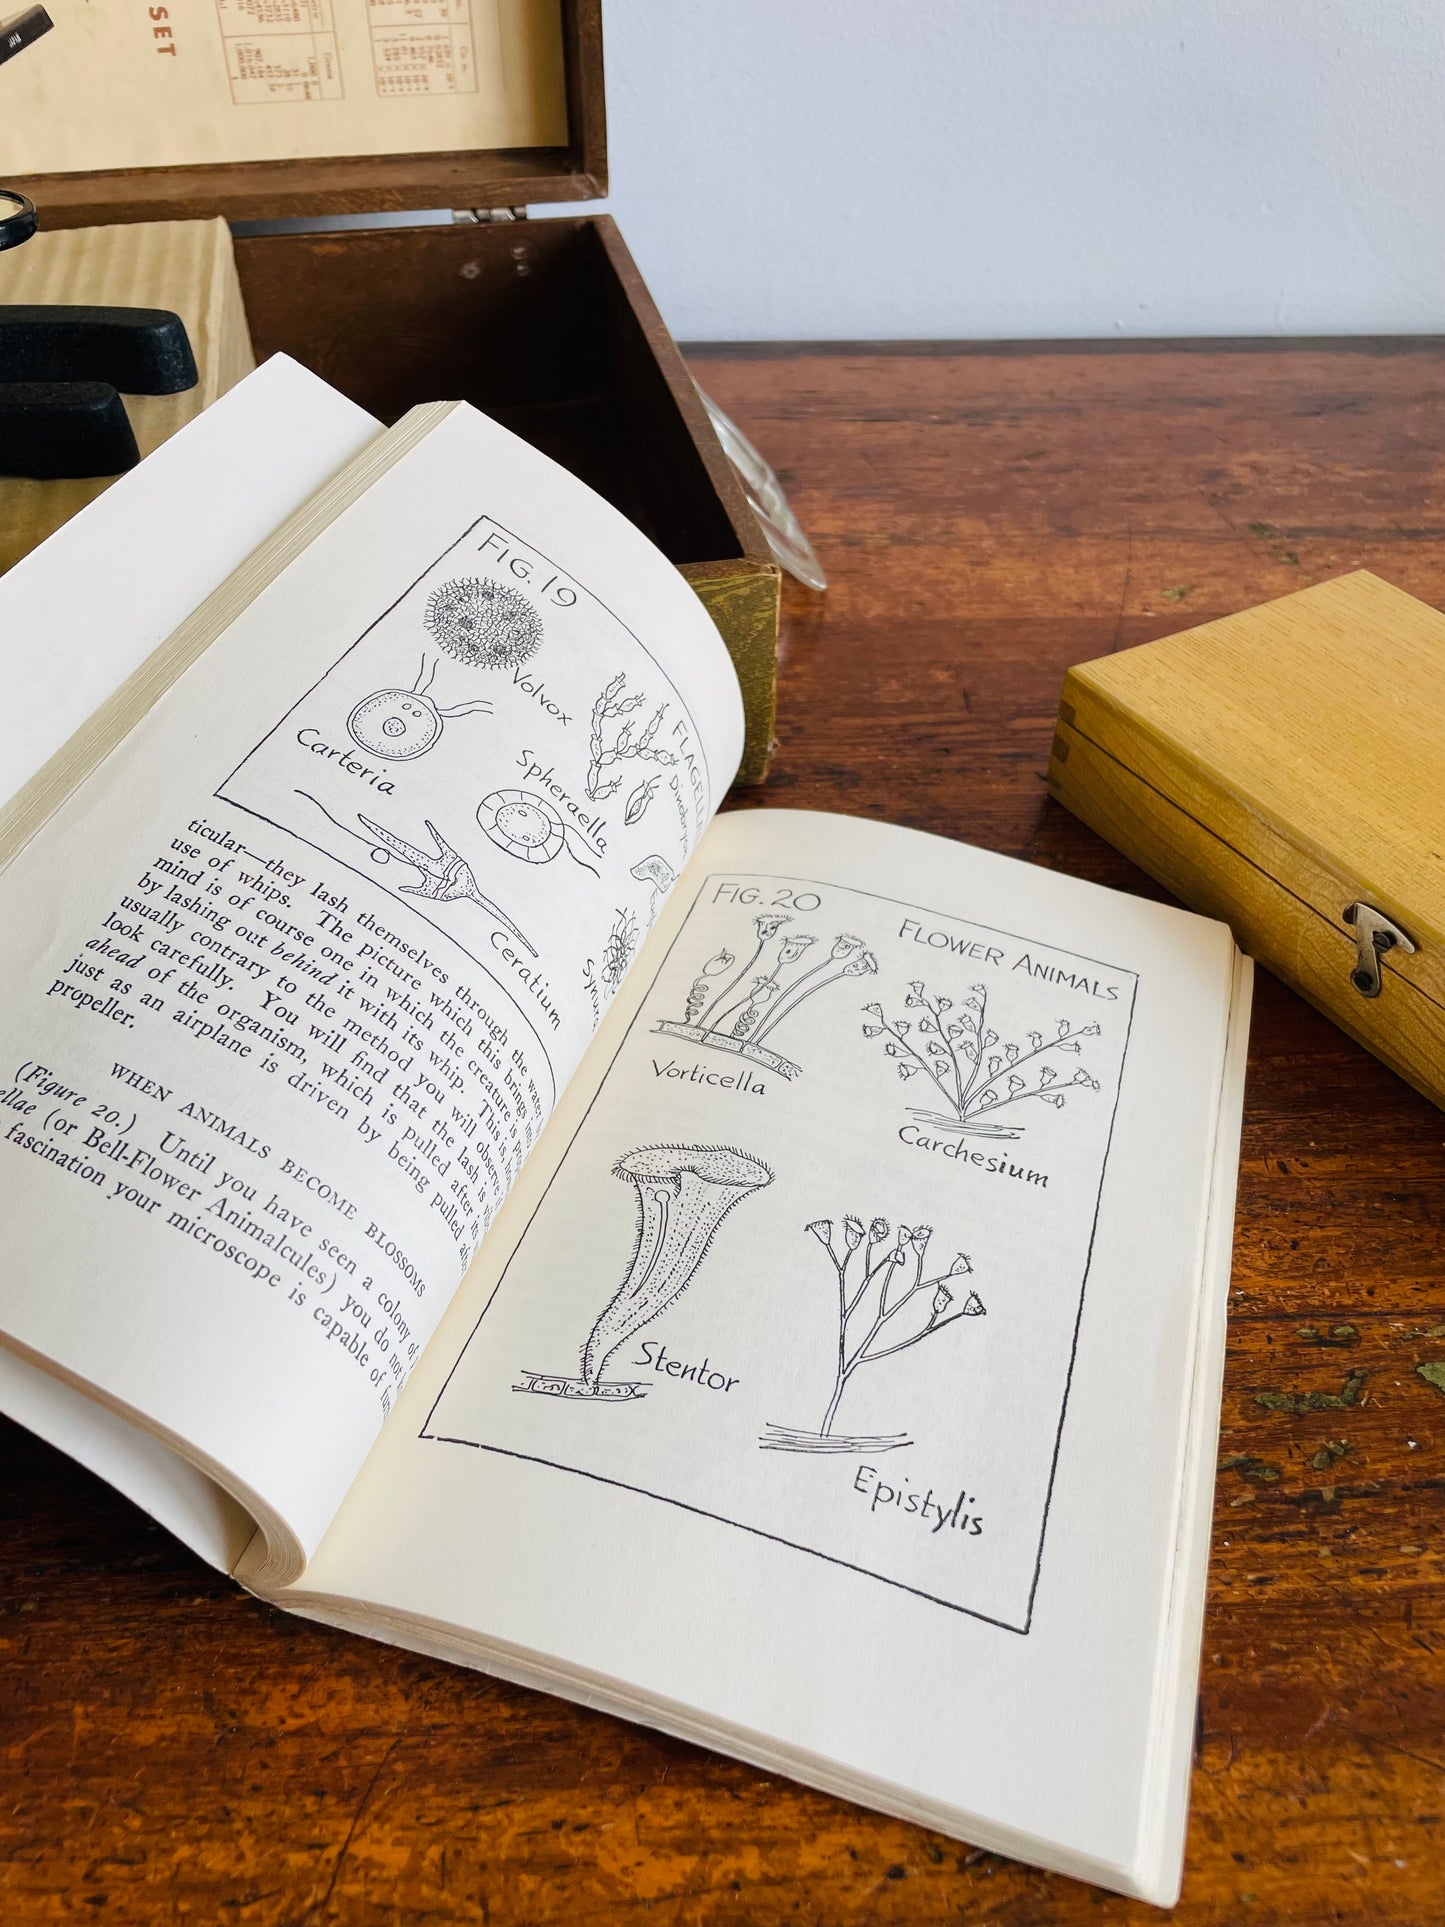 SET
FIG. 19
Volvox
FLAGELL
Carteria
Sphaeraella
Dinobryon
Ceratium
Synura
ticular—they lash themselves through the water
use of whips. The picture which this brings into
mind is of course one in which the creature is
by lashing out behind it with its whip. This is,
usually contrary to the method you will observe
look carefully. You will find that the lash is
ahead of the organism, which is pulled after it
just as an airplane is driven by being pulled
propeller.
WHEN ANIMALS BECOME BLOSSOMS
(Figure 20.) Until you have seen a colony of
ellae (or Bell-Flower Animalcules) you do not
fascination your microscope is capable of
FIG. 20
FLOWER ANIMALS
Vorticella
Carchesium
Stentor
Epistylis